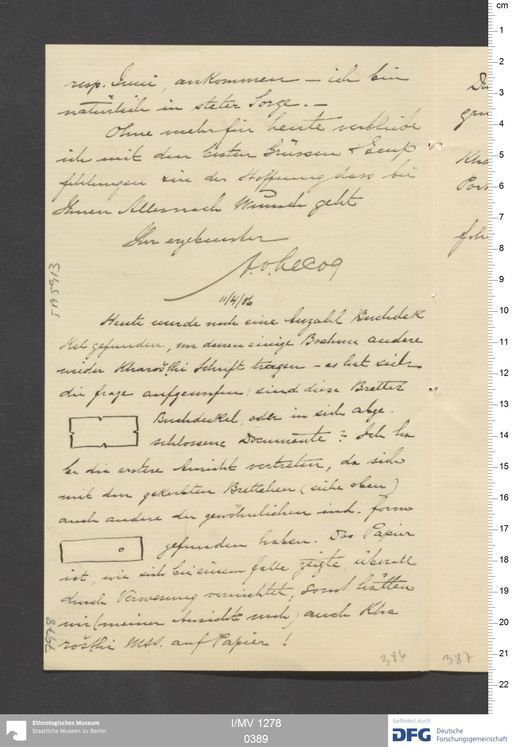 resp. Juni, ankommen – ich bin
natürlich in steter Sorge. –
Ohne mehr für heute verbleibe
ich mit den besten Grüssen & Emp
fehlungen in der Hoffnung dass bei
Ihnen Alles nach Wunsch geht
Ihr ergebenster
A. v. Le Coq
11/4/06
Heute wurde noch eine Anzahl Buchdek
kel gefunden, von denen einige Brahmi andere
wieder Kharoṣṭhi Schrift tragen – es hat sich
die frage aufgeworfen: sind diese Bretter
Buchdeckel, oder in sich abge-
schlossene Documente? Ich ha
be die erstere Ansicht vertreten, da sich
mit den gekerbten Brettchen (siehe oben)
auch andere der gewöhnlichen ind. form
gefunden haben. Das Papier
ist, wie sich bei einem falle zeigte, überall
durch Verwesung vernichtet, sonst hätten
wir (meiner Ansicht nach) auch Kha
roṣṭhi Mss. auf Papier!
TA 5913
7978
386
387
cm
1
2
3
4
5
6
7
8
9
10
11
12
13
14
15
16
17
18
19
20
21
22
Ethnologisches Museum
Staatliche Museen zu Berlin
I/MV 1278
0389
Gefördert durch
DFG Deutsche
Forschungsgemeinschaft